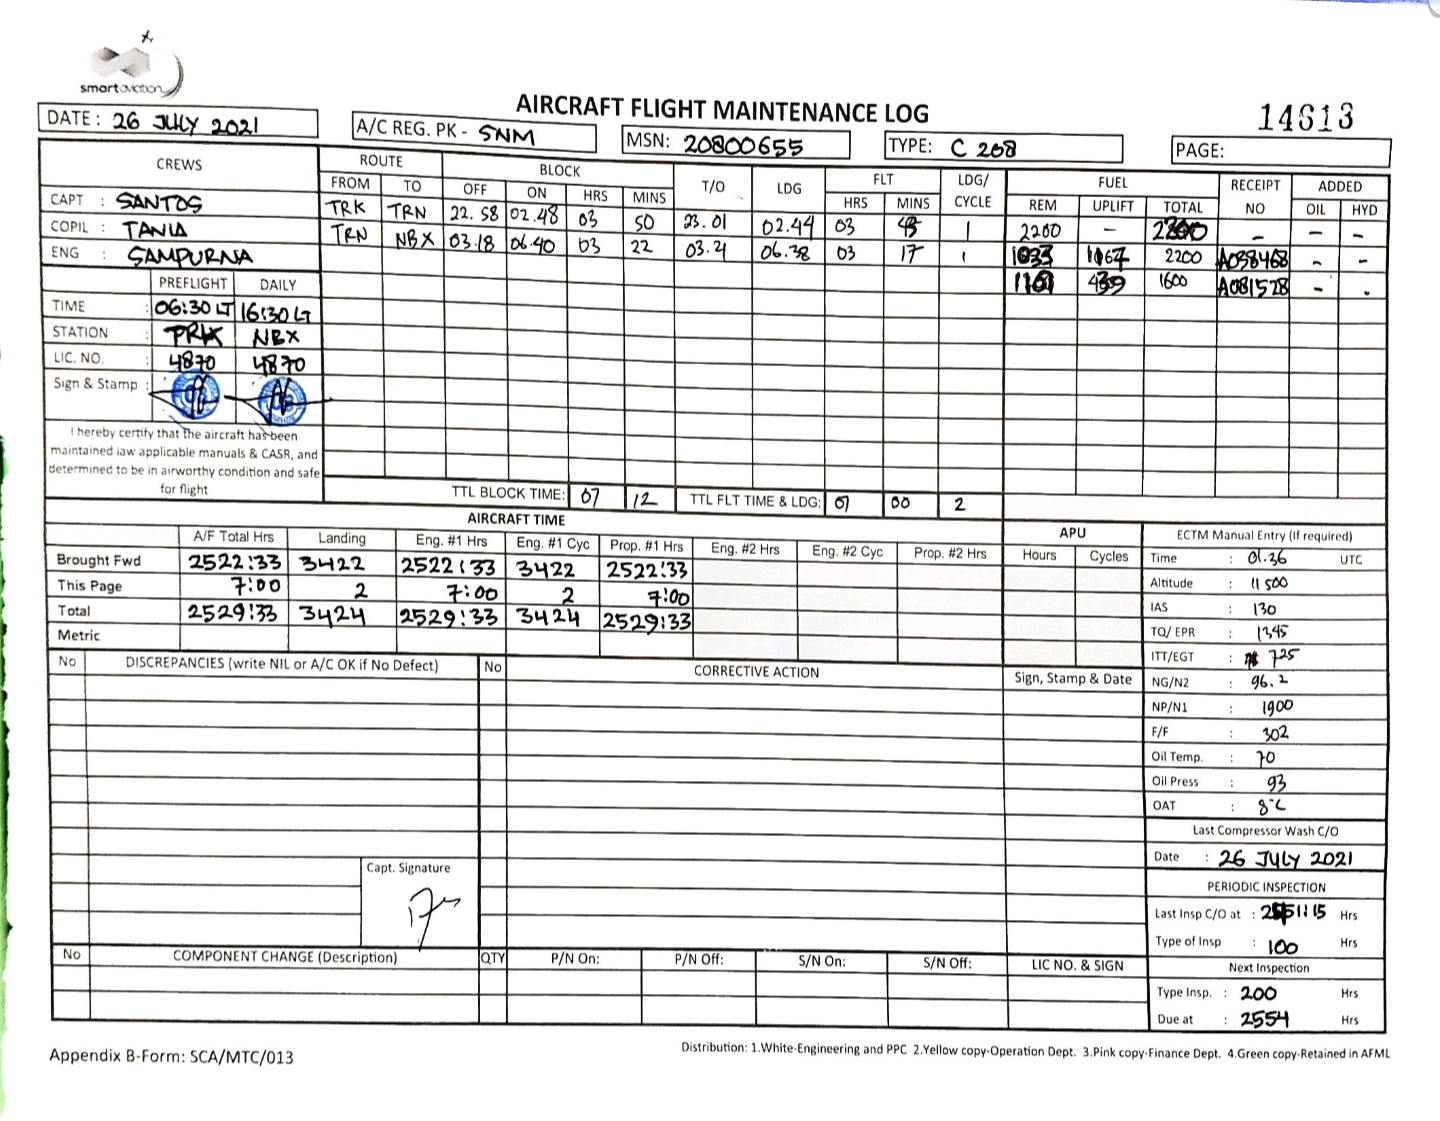 smartaviation
AIRCRAFT FLIGHT MAINTENANCE LOG
14613
DATE: 26 JULY 2021
A/C REG. PK - SNM
MSN: 20800655
TYPE: C 208
PAGE:
CREWS ROUTE BLOCK T/O LDG FLT LDG/CYCLE FUEL RECEIPT NO ADDED
FROM TO OFF ON HRS MINS HRS MINS REM UPLIFT TOTAL OIL HYD
CAPT : SANTOS TRK TRN 22.58 02.48 03 50 23.01 02.44 03 43 1 2200 - 2200 - - -
COPIL : TANIA TRN NBX 03.18 06.40 03 22 03.21 06.38 03 17 1 1033 1167 2200 A038468 - -
ENG : SAMPURNA 1161 439 1600 A081528 - -
PREFLIGHT DAILY
TIME : 06:30 LT 16:30 LT
STATION : TRK NBX
LIC. NO. : 4870 4870
Sign & Stamp :
I hereby certify that the aircraft has been
maintained iaw applicable manuals & CASR, and
determined to be in airworthy condition and safe
for flight
TTL BLOCK TIME: 07 12 TTL FLT TIME & LDG: 07 00 2
AIRCRAFT TIME APU
A/F Total Hrs Landing Eng. #1 Hrs Eng. #1 Cyc Prop. #1 Hrs Eng. #2 Hrs Eng. #2 Cyc Prop. #2 Hrs Hours Cycles
Brought Fwd 2522:33 3422 2522:33 3422 2522:33
This Page 7:00 2 7:00 2 7:00
Total 2529:33 3424 2529:33 3424 2529:33
Metric
ECTM Manual Entry (If required)
Time : 01.36 UTC
Altitude : 11 500
IAS : 130
TQ/ EPR : 1345
ITT/EGT : 725
NG/N2 : 96.2
NP/N1 : 1900
F/F : 302
Oil Temp. : 70
Oil Press : 93
OAT : 8°C
Last Compressor Wash C/O
Date : 26 JULY 2021
PERIODIC INSPECTION
Last Insp C/O at : Hrs
Type of Insp : 100 Hrs
Next Inspection
Type Insp. : 200 Hrs
Due at : 2554 Hrs
No DISCREPANCIES (write NIL or A/C OK if No Defect) No CORRECTIVE ACTION Sign, Stamp & Date
Capt. Signature
No COMPONENT CHANGE (Description) QTY P/N On: P/N Off: S/N On: S/N Off: LIC NO. & SIGN
Appendix B-Form: SCA/MTC/013
Distribution: 1.White-Engineering and PPC 2.Yellow copy-Operation Dept. 3.Pink copy-Finance Dept. 4.Green copy-Retained in AFML